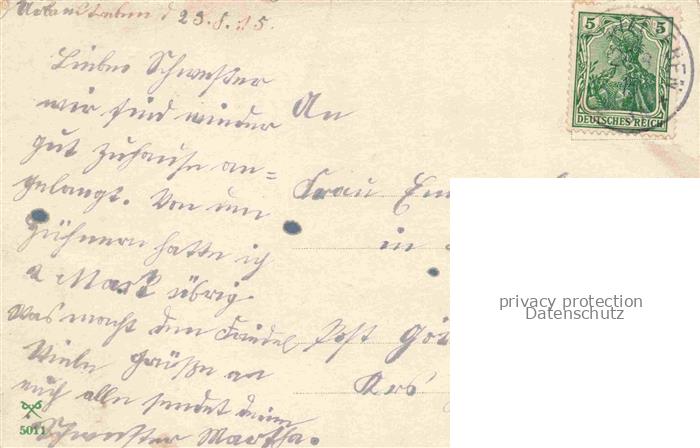 23.8.15.
Liebe Schwester
wir sind wieder
gut zuhause an=
gelangt. Von den
Hühnern hatte ich
2 Mark übrig.
Was macht den
Viele Grüße an
euch alle sendet deine
Schwester Martha.
An
Frau Em
in
Post Gö
Krs
5 5
DEUTSCHES REICH
BEN
5011
privacy protection
Datenschutz